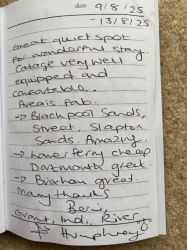 date 9/8/25
-13/8/25
Great quiet spot
for wonderful stay.
Cottage very well
equipped and
comfortable.
Area is fab.
-> Blackpool Sands,
Street, Slapton
Sands. Amazing.
-> ferry cheap
Dartmouth great.
-> Brixham great.
Many thanks
Grant, Indi, River
& Humphrey